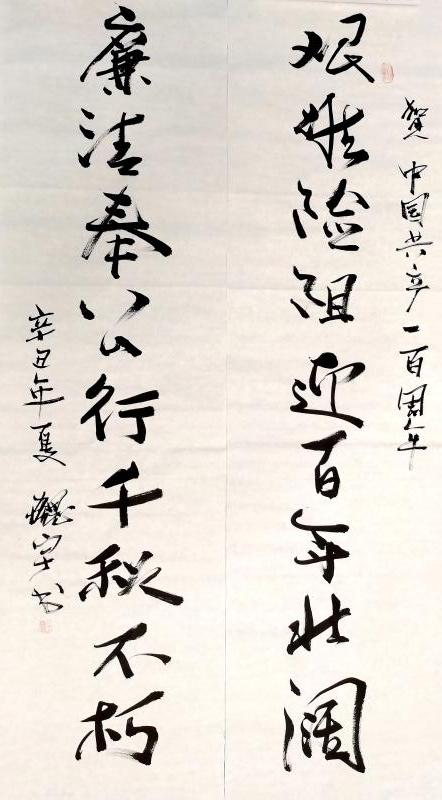 贺 中国共产一百周年
艰难险阻迎百年壮阔
廉洁奉公行千秋不朽
辛丑年夏 书